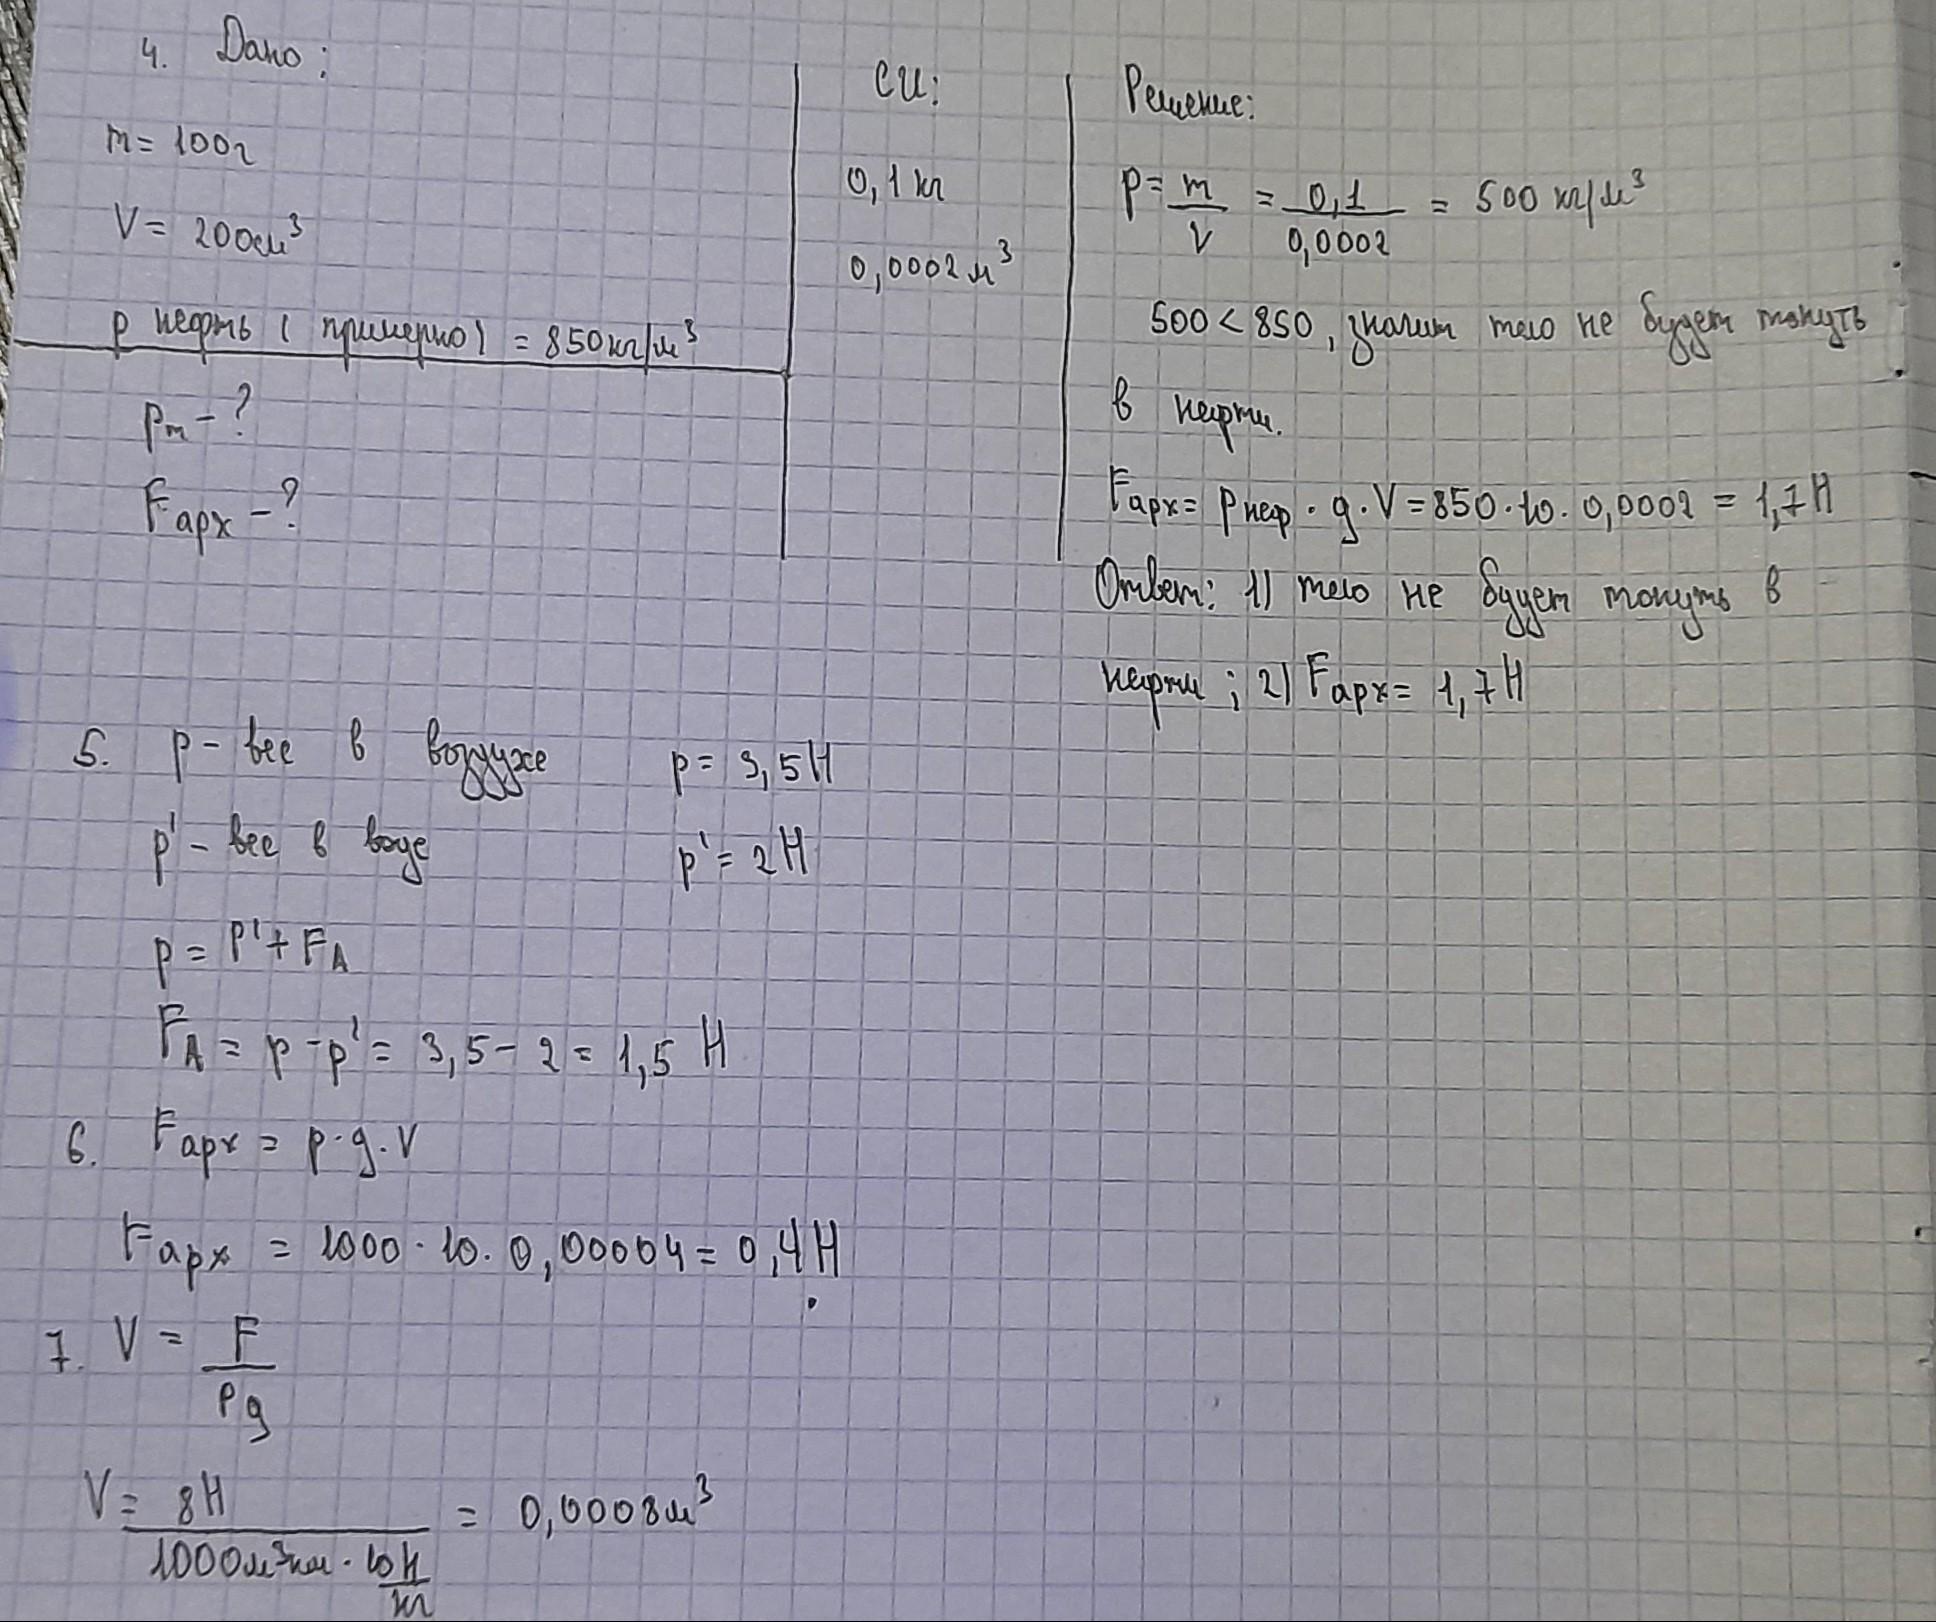 4. Дано:
m = 100г
V = 200см³
р нефть (примерно) = 850кг/м³
рт - ?
Fарх - ?
СИ:
0,1 кг
0,0002 м³
Решение:
р = m/V = 0,1/0,0002 = 500 кг/м³
500 < 850, значит тело не будет тонуть
в нефти.
Fарх = рнеф · g · V = 850 · 10 · 0,0002 = 1,7 Н
Ответ: 1) тело не будет тонуть в
нефти; 2) Fарх = 1,7 Н
5. р - вес в воздухе р = 3,5 Н
р' - вес в воде р' = 2 Н
р = р' + FА
FА = р - р' = 3,5 - 2 = 1,5 Н
6. Fарх = р · g · V
Fарх = 1000 · 10 · 0,00004 = 0,4 Н
7. V = F/рg
V = 8Н / 1000м³ · 10Н/кг = 0,0008м³